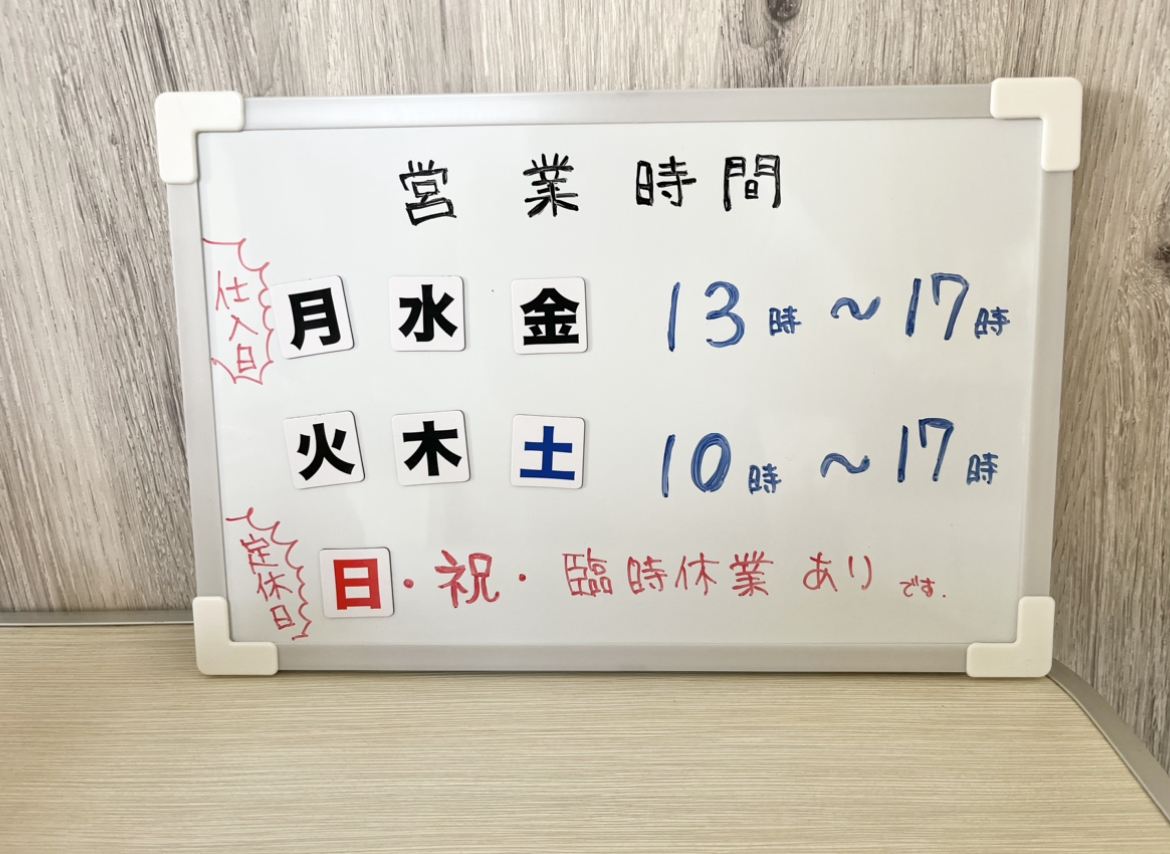 営業時間
仕入日
月 水 金 13時 ～ 17時
火 木 土 10時 ～ 17時
定休日
日・祝・臨時休業 あり です.